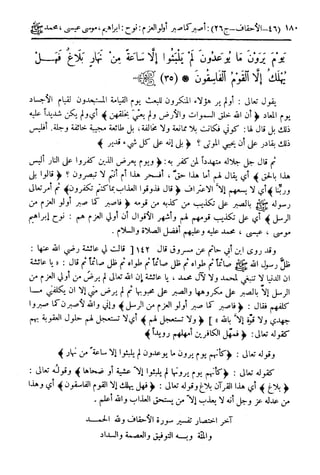 ١٨٠ (٤٦-الأحقاف-ج٢٦): أصبر كما صبر أولو العزم: نوح: ابراهيم، موسى عيسى، محمد ﷺ
يَوْمَ يَرَوْنَ مَا يُوعَدُونَ لَمْ يَلْبَثُوا إِلَّا سَاعَةً مِنْ نَهَارٍ بَلَاغٌ فَهَلْ
يُهْلَكُ إِلَّا الْقَوْمُ الْفَاسِقُونَ * (٣٥)
يقول تعالى : أولم ير هؤلاء المنكرون للبعث يوم القيامة المستبعدون لقيام الأجساد
يوم المعاد ﴿ أن الله خلق السموات والأرض ولم يعي بخلقهن ﴾ أي ولم يكن شديداً عليه
بل قال لها : كوني فكانت بلا ممانعة ولا مخالفة، بل طائعة مجيبة خائفة وجلة. أفليس
ذلك بقادر على أن يحيي الموتى ؟ ﴿ بلى إنه على كل شيء قدير ﴾
ثم قال جل جلاله متهدداً لمن كفر به: ﴿ ويوم يعرض الذين كفروا على النار أليس
هذا بالحق ﴾ أي يقال لهم أما هذا حق ، أفسحر هذا أم أنتم لا تبصرون ؟ ﴿ قالوا بلى
وربنا ﴾ أي لا يسعهم إلا الاعتراف ﴿ قال فذوقوا العذاب بما كنتم تكفرون ﴾ ثم أمر تعالى
رسوله ﷺ بالصبر على تكذيب من كذبه من قومه ﴿ فاصبر كما صبر أولو العزم من
الرسل ﴾ أي على تكذيب قومهم لهم وأشهر الأقوال أن أولي العزم هم : نوح إبراهيم
موسى ، عيسى ، محمد عليه وعليهم أفضل الصلاة والسلام .
وقد روى ابن أبي حاتم عن مسروق قال ١٤٢ قالت لي عائشة رضي الله عنها :
ظل رسول الله ﷺ صائماً ثم طواه ثم ظل صائماً ثم طواه ثم ظل صائماً ثم قال : « يا عائشة
ان الدنيا لا تنبغي لمحمد ولا لآل محمد ، يا عائشة إن الله تعالى لم يرض من أولي العزم من
الرسل إلا بالصبر على مكروهها والصبر على محبوبها ثم لم يرض مني إلا ان يكلفني مـا
كلفهم فقال : ﴿ فاصبر كما صبر أولو العزم من الرسل ﴾ وإني والله لأصبرن كما صبروا
جهدي ولا قوة إلا بالله » ﴿ ولا تستعجل لهم ﴾ أي لا تستعجل لهم حلول العقوبة بهم
كقوله تعالى: ﴿ فمهل الكافرين أمهلهم رويداً ﴾
وقوله تعالى : ﴿ كأنهم يوم يرون ما يوعدون لم يلبثوا إلا ساعة من نهار ﴾
كقوله تعالى : ﴿ كأنهم يوم يرونها لم يلبثوا إلا عشية أو ضحاها ﴾ وقوله تعالى :
﴿ بلاغ ﴾ أي هذا القرآن بلاغ وقوله تعالى : ﴿ فهل يهلك إلا القوم الفاسقون ﴾ أي وهذا
من عدله عز وجل أنه لا يعذب إلا من يستحق العذاب والله أعلم .
آخر اختصار تفسير سورة الأحقاف ولله الحمـــد
والمنة وبه التوفيق والعصمة والسداد